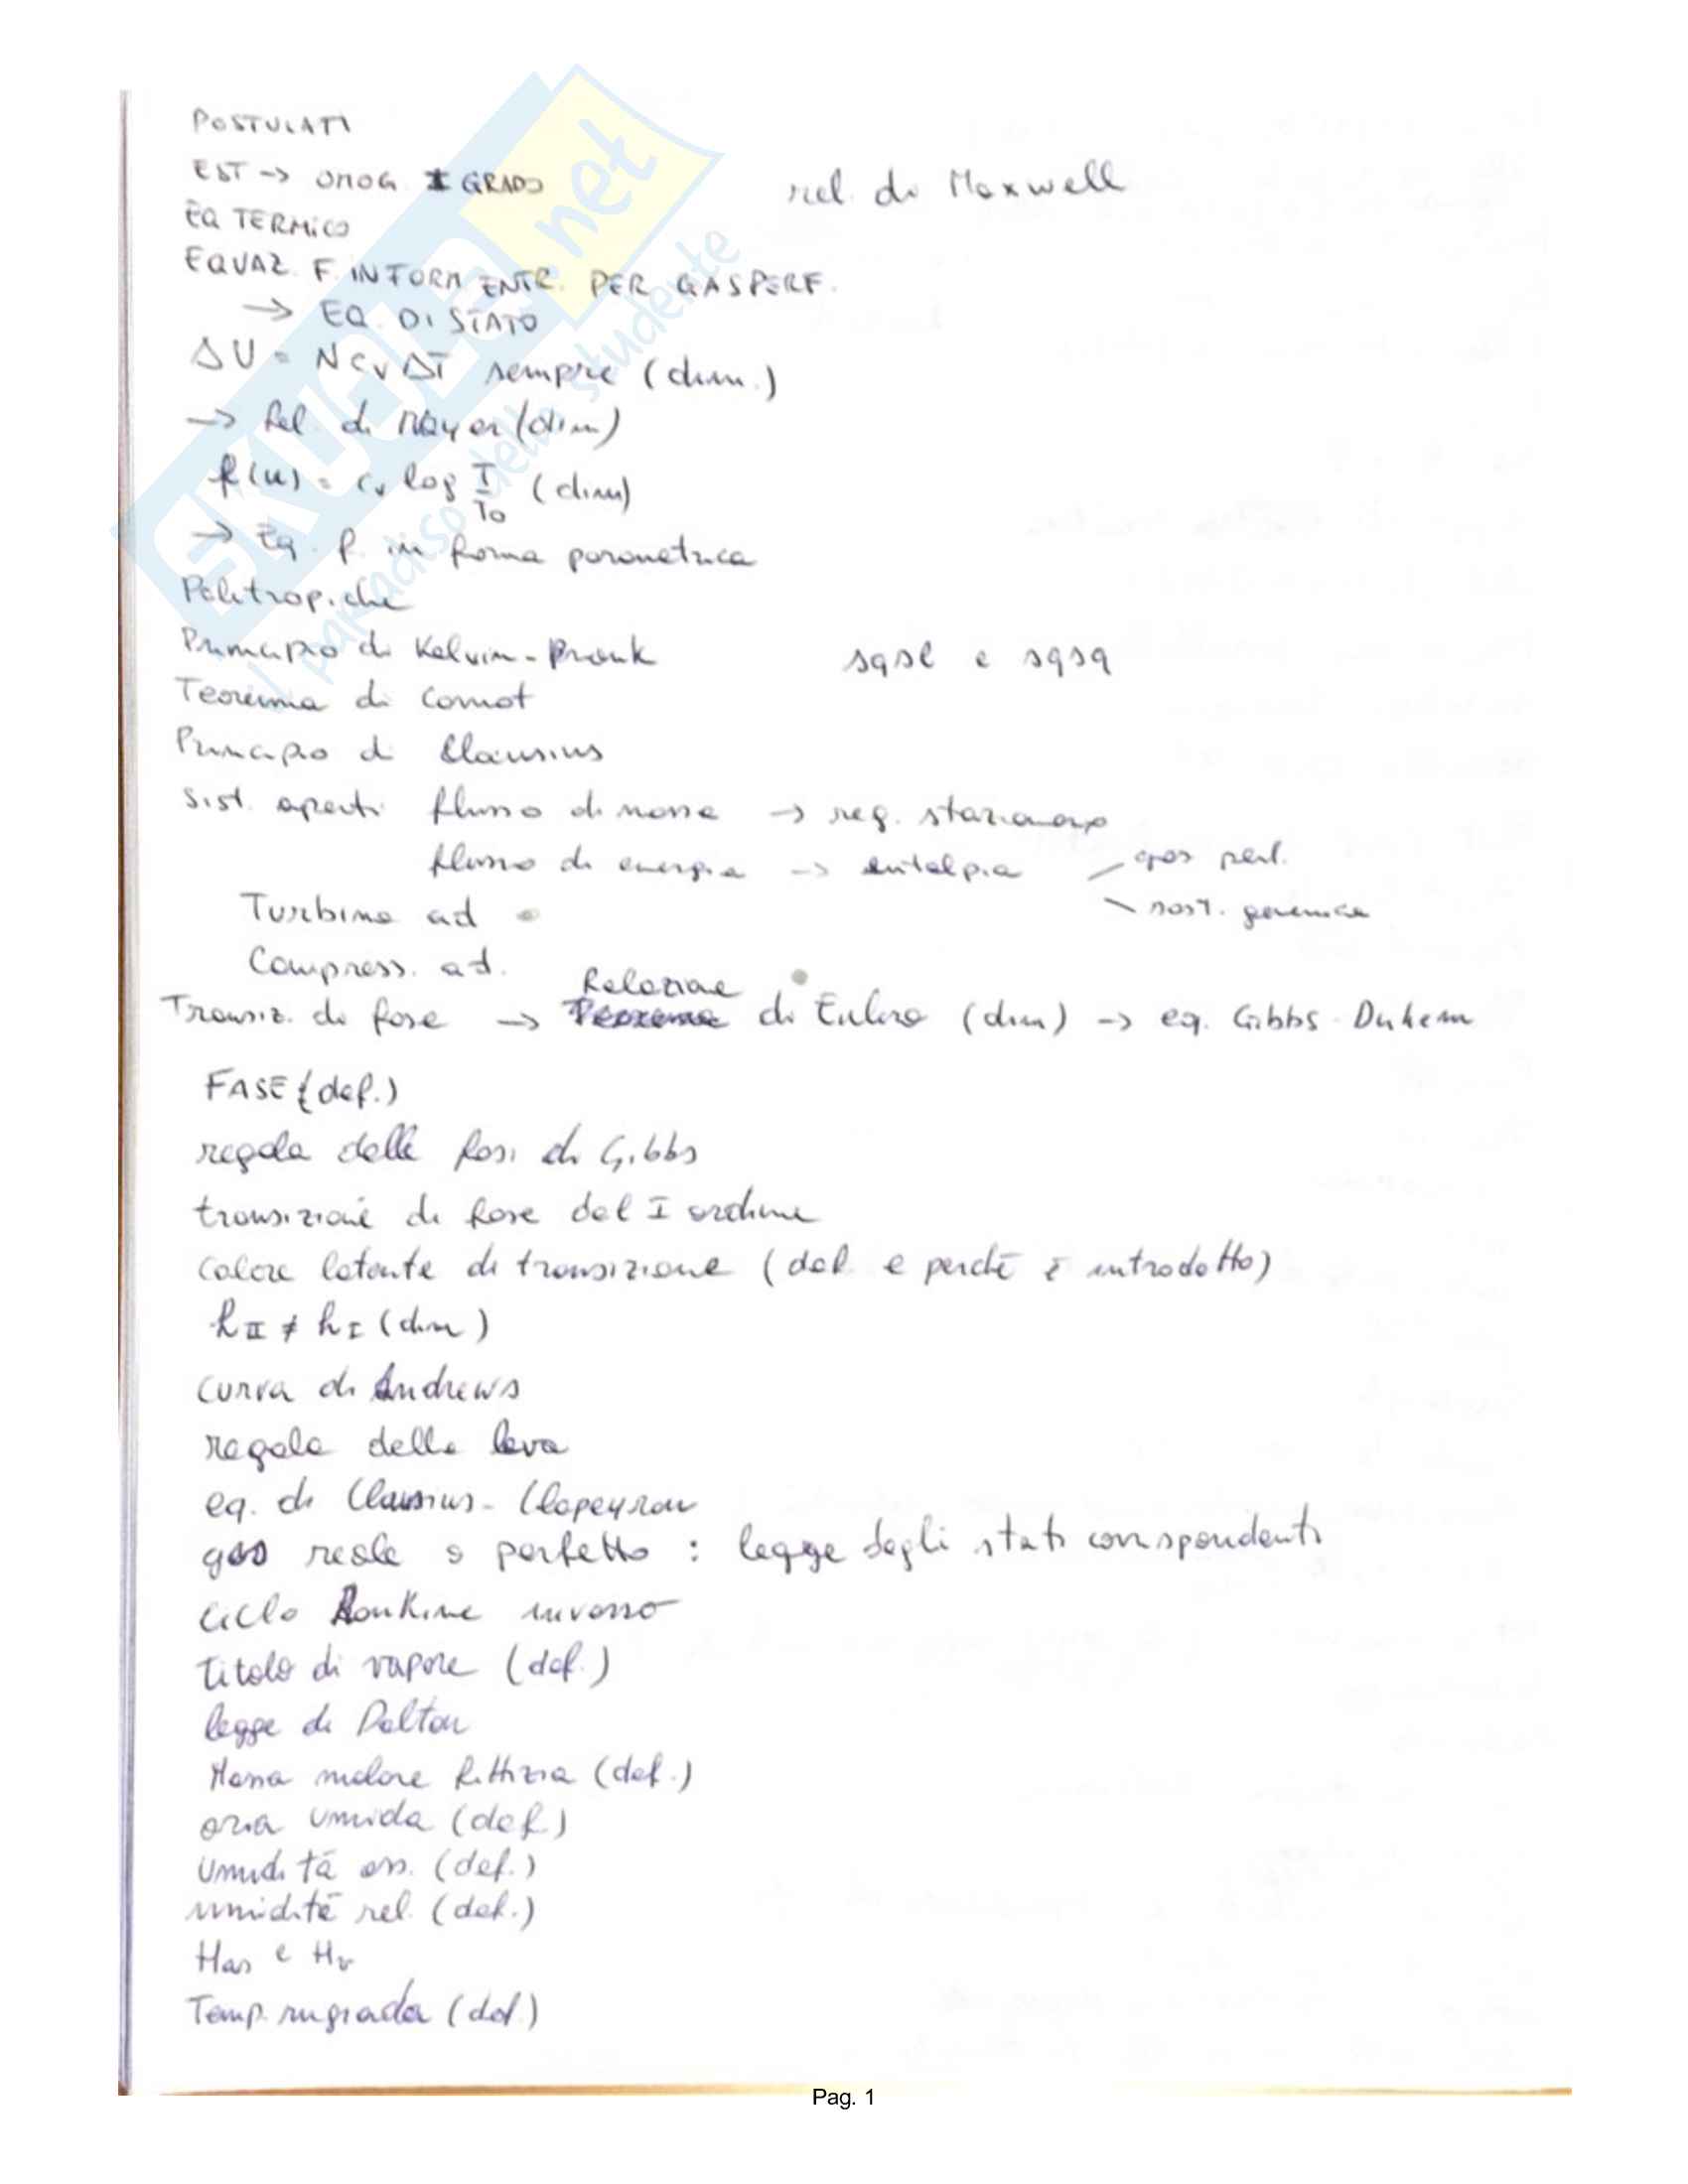 POSTULATI
EST -> OMOG. I GRADO
rel. di Maxwell
EQ TERMICO
EQUAZ. F. IN FORM ENTR. PER GAS PERF.
-> EQ. DI STATO
ΔU = N cv ΔT sempre (dim.)
-> Rel. di Mayer (dim)
f(u) = cv log T/To (dim)
-> Eq. f. in forma parametrica
Politropiche
Principio di Kelvin-Plank
sqsl e sqsq
Teorema di Carnot
Principio di Clausius
Sist. aperti flusso di massa -> reg. stazionario
flusso di energia -> entalpia gas perf.
sost. generica
Turbina ad
Compress. ad.
Relazione
Transiz. di fase -> Teorema di Eulero (dim) -> eq. Gibbs-Duhem
FASE (def.)
regola delle fasi di Gibbs
transizioni di fase del I ordine
calore latente di transizione (def e perchè è introdotto)
hII ≠ hI (dim)
curva di Andrews
regola della leva
eq. di Clausius-Clapeyron
gas reale o perfetto : legge degli stati corrispondenti
ciclo Rankine inverso
titolo di vapore (def.)
legge di Dalton
Massa molare fittizia (def.)
aria umida (def)
Umidità ass. (def.)
umidità rel. (def.)
Has e Hv
Temp. rugiada (def)
SKUOLA.net
il paradiso dello studente
Pag. 1